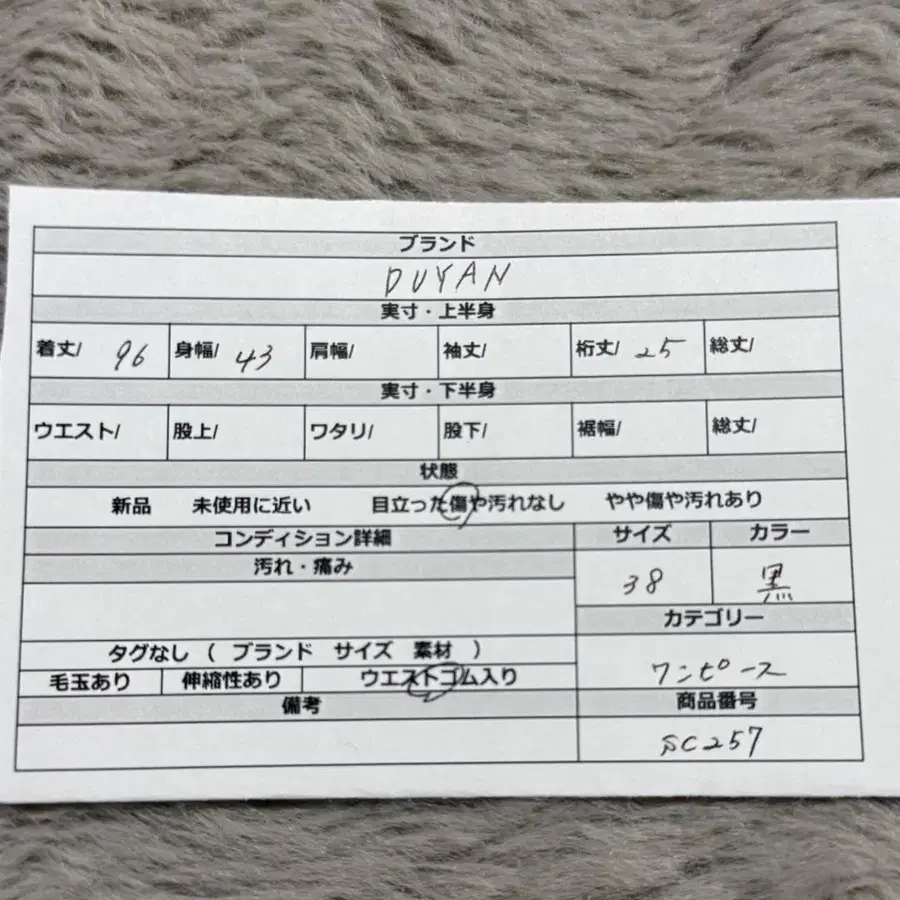 ブランド
DUYAN
実寸・上半身
着丈/ 96 身幅/ 43 肩幅/ 袖丈/ 裄丈/ 25 総丈/
実寸・下半身
ウエスト/ 股上/ ワタリ/ 股下/ 裾幅/ 総丈/
状態
新品 未使用に近い 目立った傷や汚れなし やや傷や汚れあり
コンディション詳細 サイズ カラー
汚れ・痛み 38 黒
カテゴリー
タグなし ( ブランド サイズ 素材 ) ワンピース
毛玉あり 伸縮性あり ウエストゴム入り
備考 商品番号
SC257